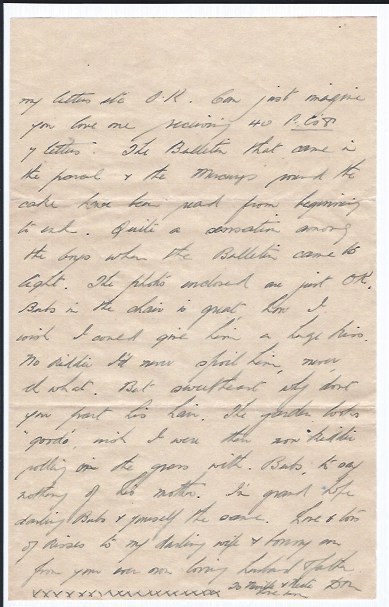 my letters etc O.K. Can just imagine
you love one receiving 40 P.Cos
7 letters. The Bulletin that came in
the parcel & the Mercurys round the
cake have been read from beginning
to end. Quite a sensation among
the boys when the Bulletin came to
light. The photos enclosed are just OK,
Bubs in the chair is great, how I
wish I could give him a huge kiss.
No kiddin I'd never spoil him, never,
eh what. But sweetheart why dont
you part his hair. The garden looks
"goodo", wish I were there now kiddin
rolling on the grass with Bubs, to say
nothing of his mother. In grand
darling Bubs & yourself the same. Love & tons
of kisses to my darling wife & bonny son
from your ever own loving husband & father
xxxxxxxxxxxxxxxx Don